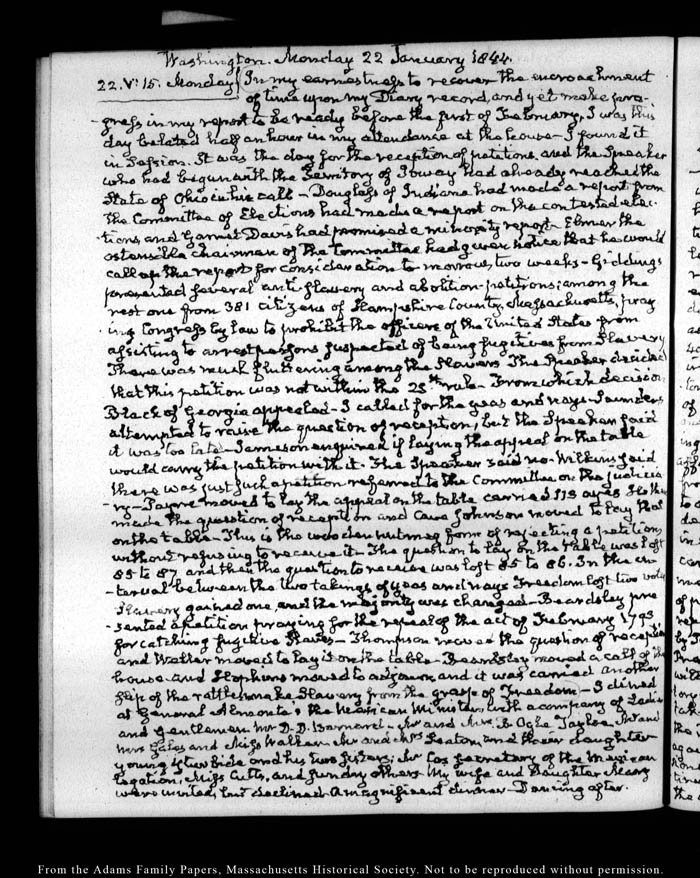 Washington. Monday 22 January 1844.
22. V: 15. Monday In my earnestness to recover the encroachment
of time upon my Diary record, and yet make pro-
gress in my report to be ready before the first of February, I was this
day belated half an hour in my attendance at the house - I found it
in Session. It was the day for the reception of petitions, and the Speaker
who had begun with the Territory of Ioway had already reached the
State of Ohio in his call - Douglass of Indiana had made a report from
the Committee of Elections had made a report on the contested elec-
tions, and Garret Davis had promised a minority report - Elmer the
ostensible chairman of the Committee had given notice that he would
call up the report for consideration to morrow two weeks - Giddings
presented several anti slavery and abolition petitions; among the
rest one from 381 citizens of Hampshire County, Massachusetts, pray
ing Congress by law to prohibit the officers of the United States from
assisting to arrest persons suspected of being fugitives from Slavery
There was much fluttering among the Slavers The Speaker decided
that this petition was not within the 25th rule - From which decision
Black of Georgia appealed - I called for the yeas and nays - Saunders
attempted to raise the question of reception, but the Speaker said
it was too late - Jameson enquired if laying the appeal on the table
would carry the petition with it. The Speaker said no - Wilkins said
there was just such a petition referred to the Committee on the Judicia
ry - Payne moved to lay the appeal on the table carried 113 ayes
made the question of reception and Cave Johnson moved to lay that
on the table - This is the wooden nutmeg form of rejecting a petition
without refusing to receive it - The question to lay on the table was lost
85 to 87 and then the question to receive was lost 85 to 86. In the in
-terval between the two takings of yeas and nays Freedom lost two votes
Slavery gained one, and the majority was changed - Beardsley pre
-sented a petition praying for the repeal of the act of February 1793
for catching fugitive Slaves - Thompson moved the question of reception
and Weller moved to lay it on the table - Beardsley moved a call of the
house and Stephens moved to adjourn, and it was carried another
slip of the rattlesnake Slavery from the grasp of Freedom - I dined
at General Almonte's the Mexican Minister, with a company of Ladies
and Gentlemen Mr D. D. Barnard - Mr and Mrs B. Ogle Tayloe, Mr and
Mrs Gales and Miss Walker. Mr and Mrs Seaton, and their daughter
young bride and his two sisters; Mr Cos Secretary of the Mexican
Legation, Miss Cutts, and sundry others My wife and Daughter Mary
were invited, but declined A magnificent dinner - Dancing after.
From the Adams Family Papers, Massachusetts Historical Society. Not to be reproduced without permission.